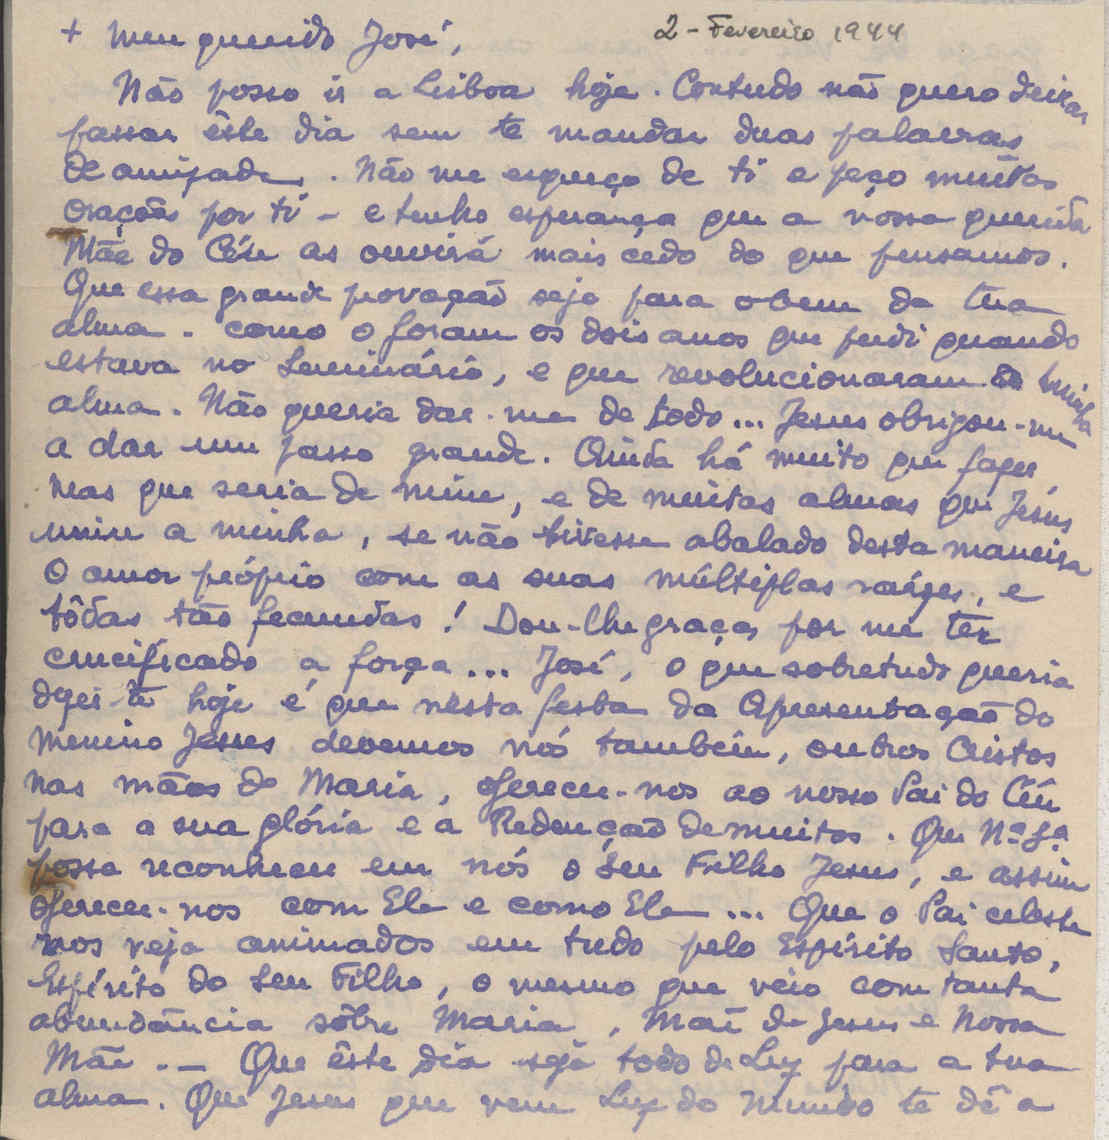 + Meu querido José,
2 - Fevereiro 1944
Não posso ir a Lisboa hoje. Contudo não quero deixar
passar êste dia sem te mandar duas palavras
de amizade. Não me esqueço de ti e peço muitas
orações por ti - e tenho esperança que a nossa querida
Mãe do Céu as ouvirá mais cedo do que pensamos.
Que essa grande provação seja para o bem da tua
alma - como o foram os dois anos que perdi quando
estava no Seminário, e que revolucionaram a minha
alma. Não queria dar-me de todo... Jesus obrigou-me
a dar um passo grande. Ainda há muito que fazer,
Mas que seria de mim, e de muitas almas que Jesús
uniu a minha, se não tivesse abalado desta maneira
O amor próprio com as suas múltiplas raízes, e
tôdas tão fecundas! Dou-lhe graças por me ter
crucificado à força... José, o que sobretudo queria
dizer-te hoje é que nesta festa da Apresentação do
Menino Jesus devemos nós também, outros Cristos
nas mãos de Maria, oferecer-nos ao nosso Pai do Céu
para a sua glória e a Redenção de muitos. Que Nª Sª
possa reconhecer em nós o Seu Filho Jesus, e assim
oferecer-nos com Ele e como Ele... Que o Pai celeste
nos veja animados em tudo pelo Espírito Santo,
Espírito do Seu Filho, o mesmo que veio com tanta
abundância sôbre Maria, Mãe de Jesus e Nossa
Mãe. - Que êste dia seja todo de Luz para a tua
alma. Que Jesus que vem Luz do Mundo te dê a